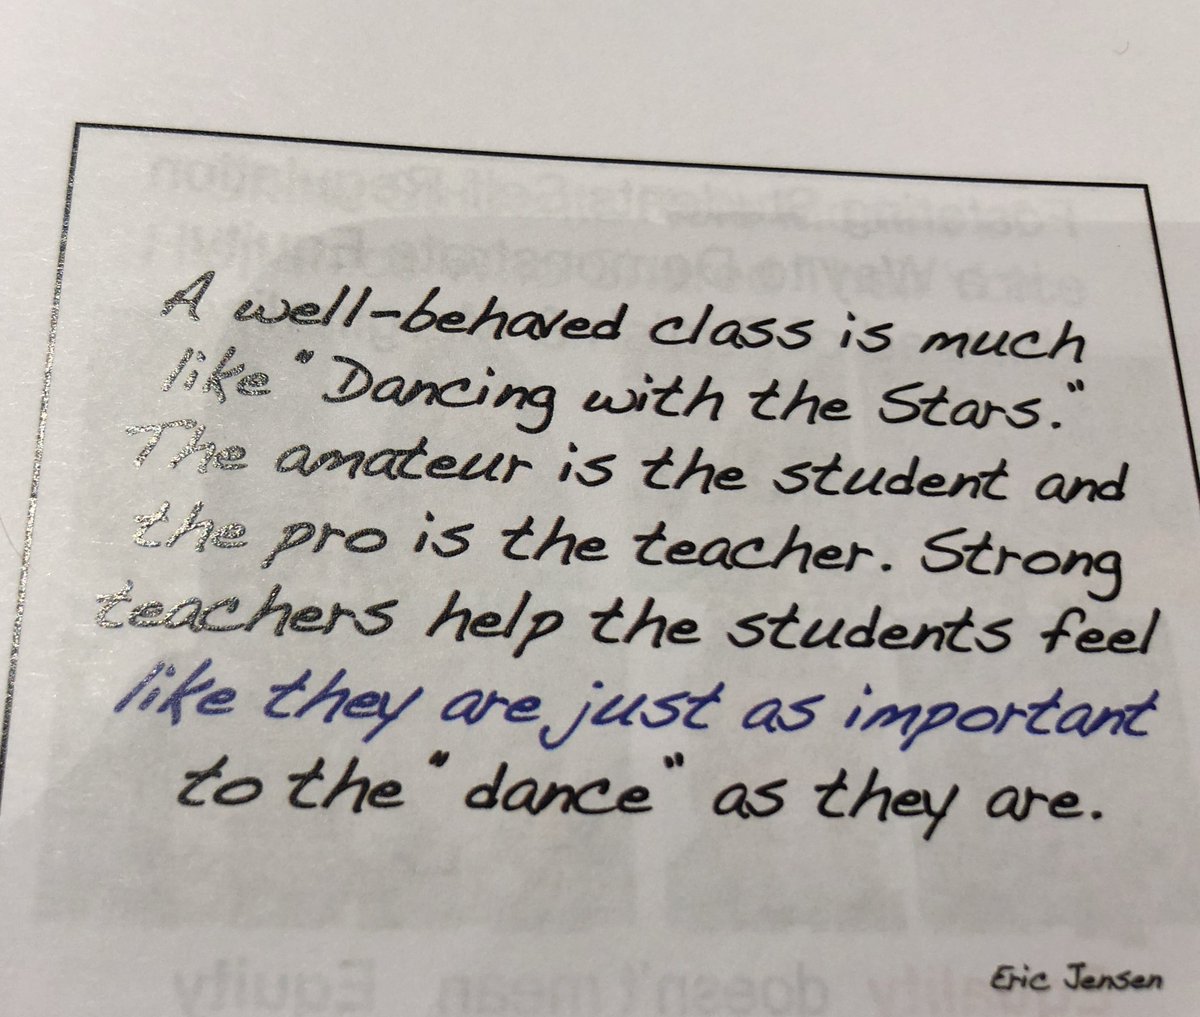 A well-behaved class is much
like "Dancing with the Stars."
The amateur is the student and
the pro is the teacher. Strong
teachers help the students feel
like they are just as important
to the "dance" as they are.
Eric Jensen